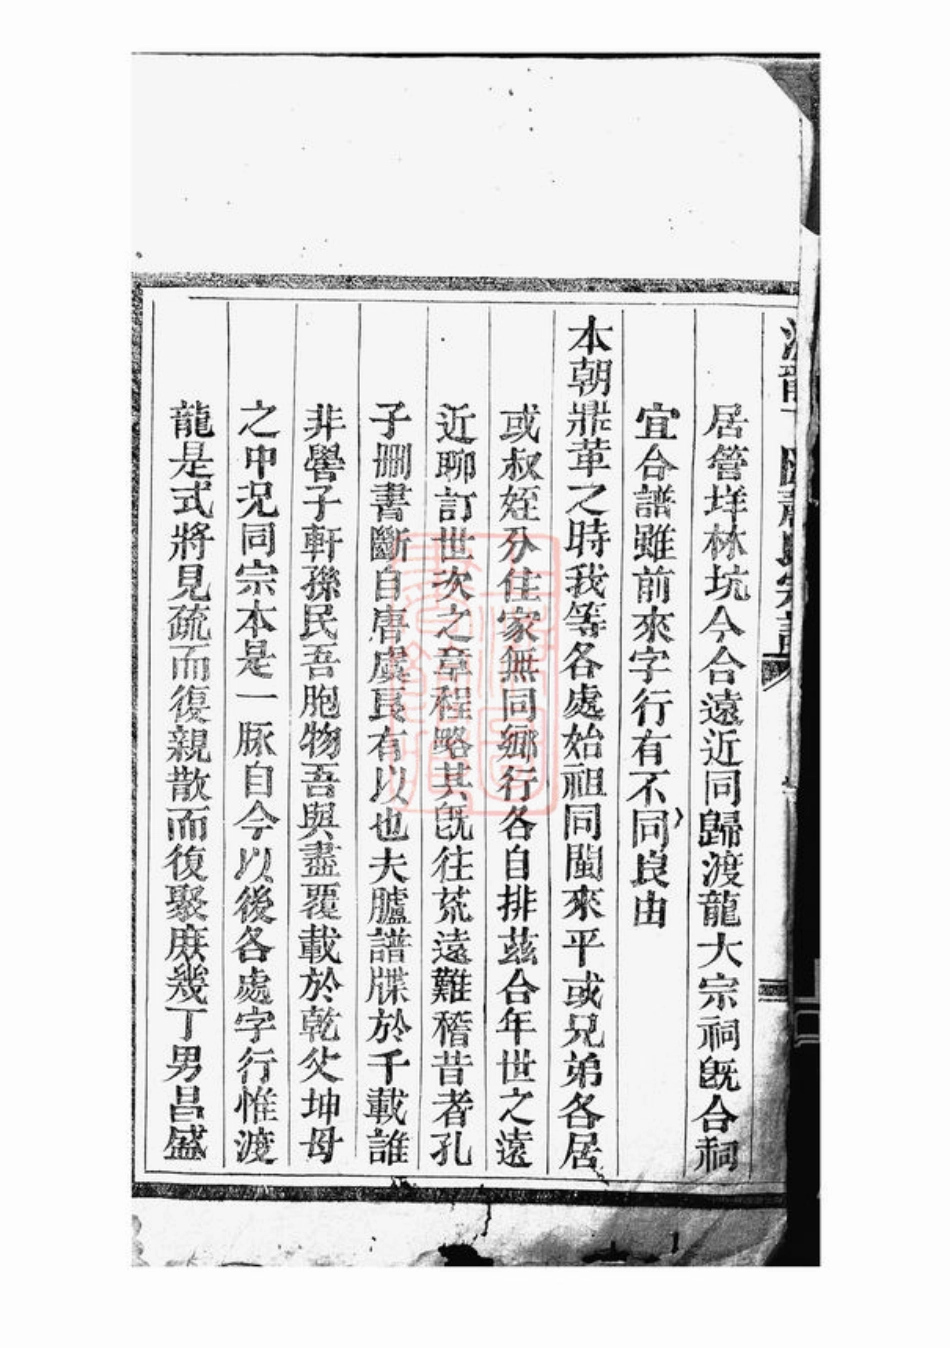 居管垟林坑今合遠近同歸渡龍大宗祠既合祠
宜合譜雖前來字行有不同良由
本朝鼎革之時我等各處始祖同閩來平或兄弟各居
或叔姪分住家無同鄉行各自排茲合年世之遠
近聊訂世次之章程略其既往荒遠難稽昔者孔
子刪書斷自唐虞良有以也夫臚譜牒於千載誰
非嚳子軒孫民吾胞物吾與盡覆載於乾父坤母
之中況同宗本是一脉自今以後各處字行惟渡
龍是式將見疏而復親散而復聚庶幾丁男昌盛